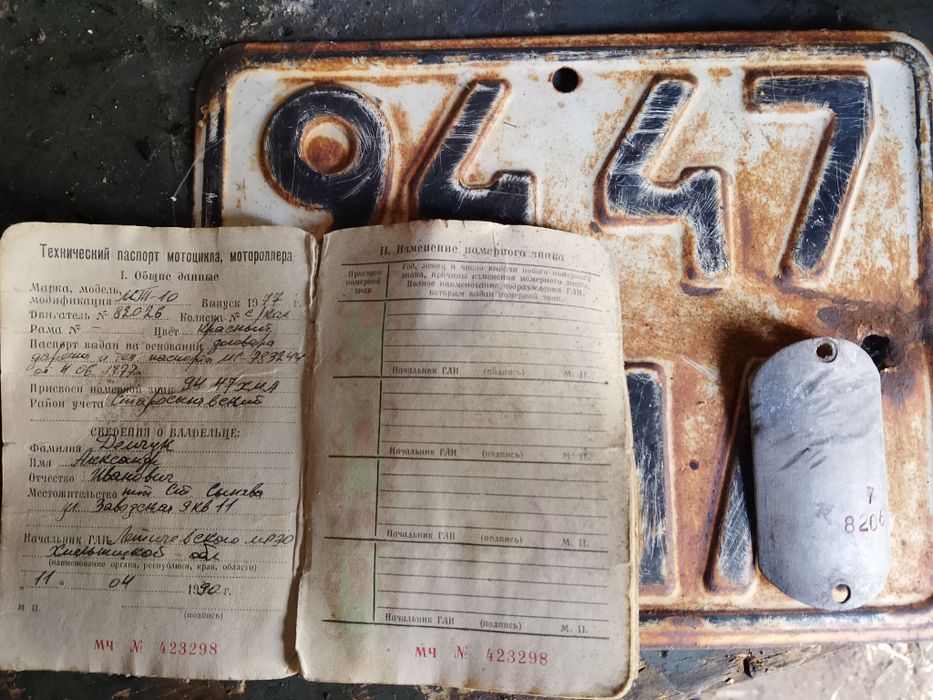 9447
Технический паспорт мотоцикла, мотороллера
I. Общие данные
Марка, модель,
модификация МТ-10 Выпуск 1977 г.
Двигатель № 82026 Коляска № с/кол
Рама № - Цвет Красный
Паспорт выдан на основании договора
дарения и тех. паспорта
от 4 06. 1977.
Присвоен номерной знак 94 47 ХМА
Район учета Старосинявский
СВЕДЕНИЯ О ВЛАДЕЛЬЦЕ:
Фамилия Демчук
Имя Александр
Отчество Иванович
Местожительство пгт. Ст Сынява
ул. Заводская 9 кв 11
Начальник ГАИ Летичевского мрэо
Хмельницкой обл
(наименование органа, республики, края, области)
"11" 04 1990 г.
М. П.
(подпись)
МЧ № 423298
II. Изменение номерного знака
Присвоен номерной знак
Год, месяц и число выдачи нового номерного
знака, причины изменения номерного знака.
Полное наименование подразделения ГАИ,
которым выдан номерной знак.
Начальник ГАИ (подпись) М. П.
Начальник ГАИ (подпись) М. П.
Начальник ГАИ (подпись) М. П.
Начальник ГАИ (подпись) М. П.
МЧ № 423298
7
8206